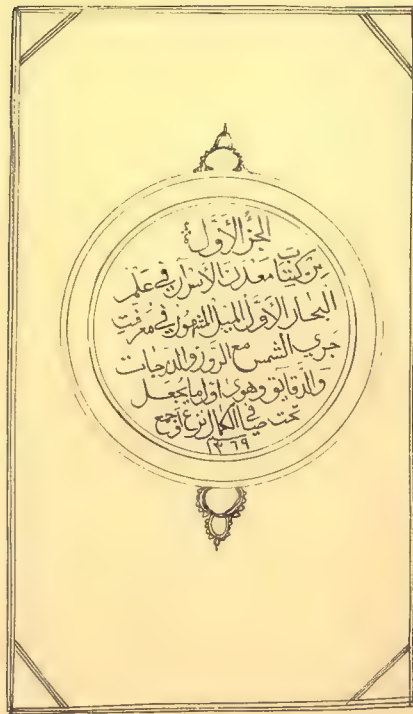 الجزُ الأوَّل
مِن كِتاب معدن الأسرار في علم
البحار الأوَّل الميل المشهور في معرفت
جري الشمس مع الروز والدرجات
والدقايق وهوى اول ما يجعل
تحت في الكمال نزع
١٣٦٩